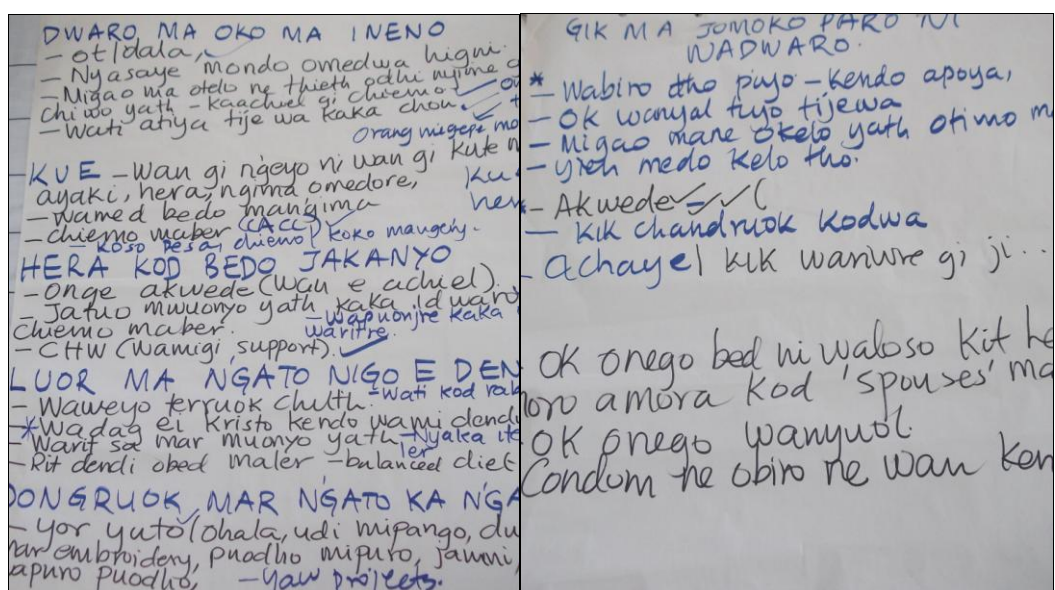 DWARO MA OKO MA INENO
- Ot/dala,
- Nyasaye mondo omedwa higni.
- Migao ma otelo ne thieth odhi nyime
chiwo yath - kaachiel gi chiemo
- Wati atiya tije wa kaka chon.
KUE - Wan gi ng'eyo ni wan gi kute
ayaki, hera, ngima omedore,
- Wamed bedo mangima
- chiemo maber (CACC)
- koso pesa, chiemo koko maugeny.
HERA KOD BEDO JAKANYO
- Onge akwede (wan e achiel).
- Jatuo mwuonyo yath kaka idwaro
chiemo maber. - Wapuonjre kaka
waritre.
- CHW (wamigi support).
LUOR MA NGATO NIGO E DEN
- Waweyo terruok chuth. - Wati kod
*Wadag ei Kristo kendo wami dend
- Warit sa mar muonyo yath - Nyaka
- Rit dendi obed maler - balanced diet
DONGRUOK MAR NG'ATO KA NG'A
- Yor yuto (ohala, udi mipango, du
mar embroidery, puodho mipuro, jamni,
apuro puodho, - Yaw projects.
GIK MA JOMOKO PARO NI
WADWARO.
* - Wabiro tho piyo - kendo apoya,
- Ok wanyal tiyo tijewa
- Migao mane okelo yath otimo
- Yieh medo kelo tho.
- Akwede
- Kik chandruok kodwa
- achayel kik wariwre gi ji..
Ok onego bed ni waloso kit
moro amora kod 'spouses'
Ok onego wanyuol.
Condom ne obiro ne wan